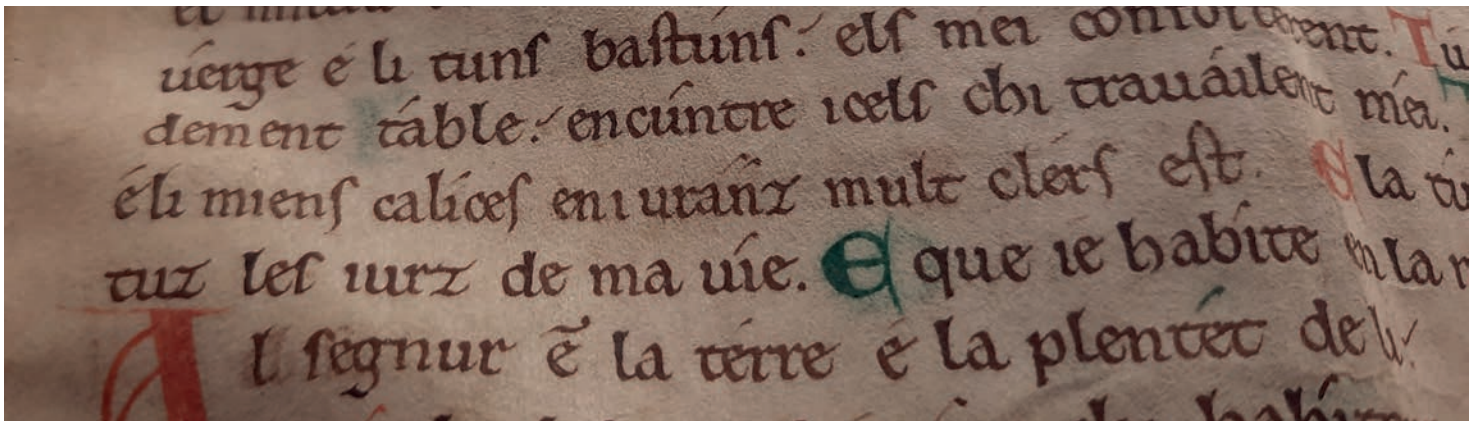 uérge é li tunſ baſtunſ: elſ mei confortérent. Tu
dement táble: encúntre icelſ chi trauáilent méi.
é li mienſ calíceſ eniuranz mult clérſ eſt. E la tu
tuz leſ iurz de ma uíe. E que ie habíte en la
Al ſegnur ẽ la térre é la plentét de li: